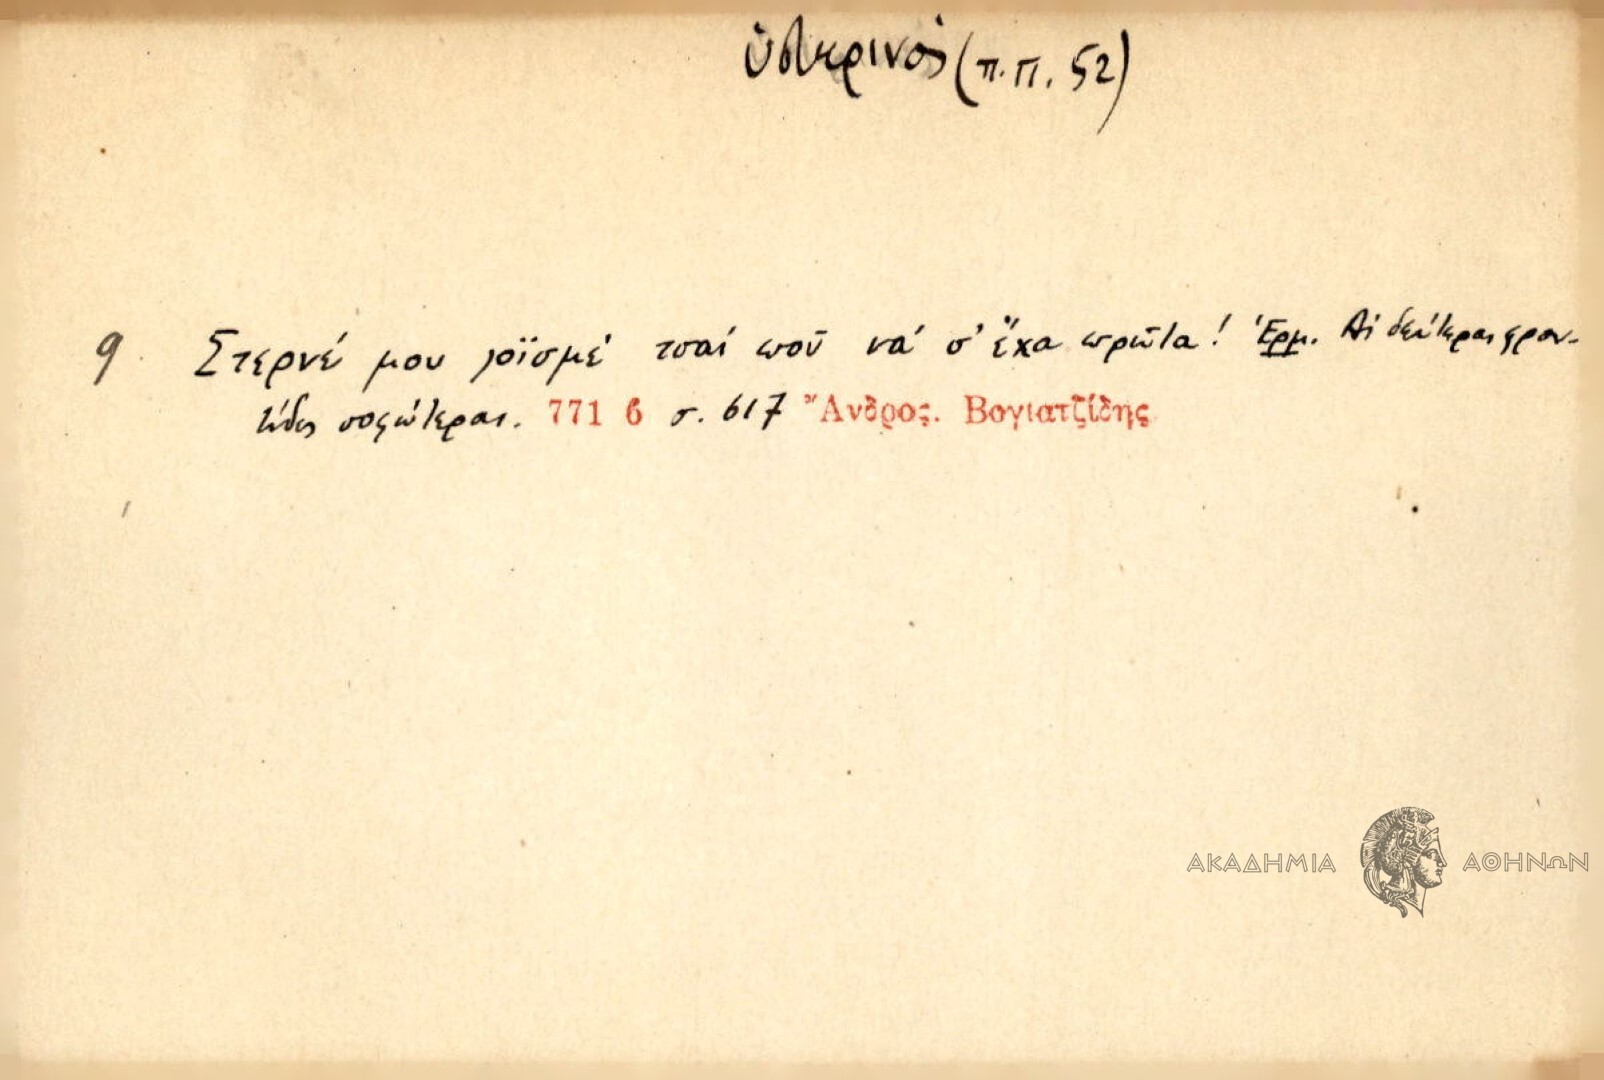 ὑστερινός (π.π. 52)
9 Στερνέ μου λοϊσμέ τσαί ποῦ νά σ' ἔχα πρῶτα! Ἑρμ. Αἱ δεύτεραι φρον-
τίδες σοφώτεραι. 771 6 σ. 617 Ἄνδρος. Βογιατζίδης
ΑΚΑΔΗΜΙΑ ΑΘΗΝΩΝ